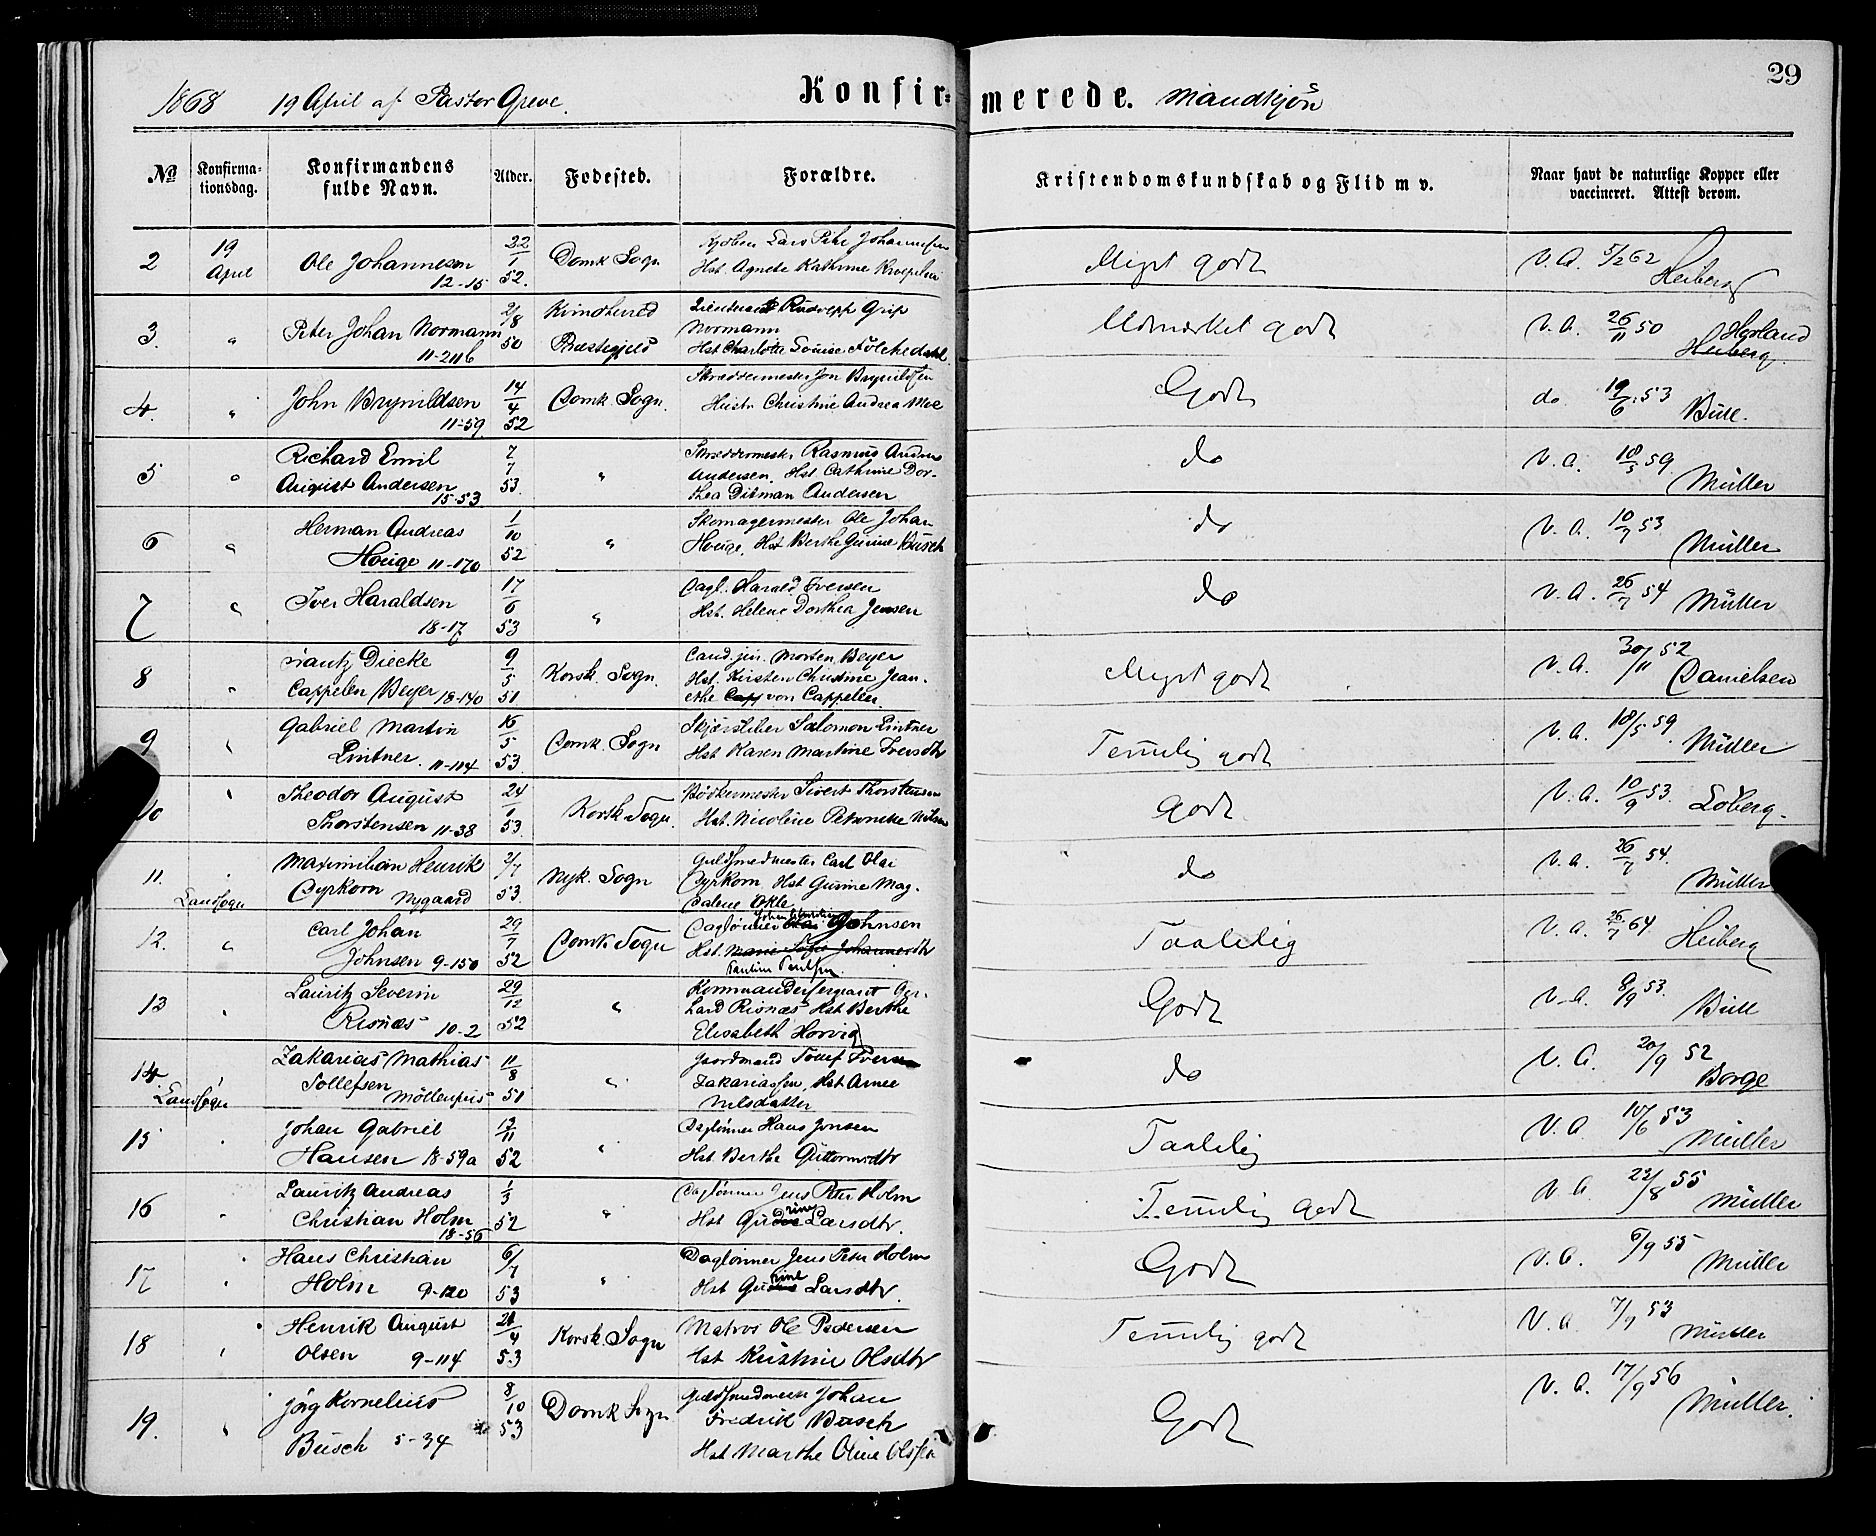 29
1868 19 April af Pastor Greve. Konfir- merede. Mandkjøn
No Konfirma-tionsdag. Konfirmandens fulde Navn. Alder. Fødested. Forældre. Kristendomskundskab og Flid m v. Naar havt de naturlige Kopper eller vaccineret. Attest derom.
2 19 April Ole Johannesen 12-15 22/1 52. Domk Sogn Lars Peter Johannesen
Hst. Agnete Kathrine Meget godt V.A. 5/2 62 Heiberg
3. " Peter Johan Normann 11-211b 2/8 50 Kvindherred Præstegjeld Rudolph Grip
Normann
Hst Charlotte Louise Udmærket godt V.A. 26/11 50
4. " John Brynildsen 11-59 14/4 52 Domk. Sogn. Skreddermester Jon Brynildsen
Hustr. Christine Andrea Godt do 19/6 53 Bull.
5 " Richard Emil
August Andersen 15-53. 7/7 53. " Skreddermestr. Rasmus
Andersen. Hst Cathrine Dor-
thea Ditman Andersen do V.A. 18/5 59 Müller
6 " Herman Andreas
Houge 11-170 1/10 52 " Skomagermester Ole Johan
Houge. Hst Berthe Gurine Busch do V.A. 10/7 53 Müller
7 " Iver Haraldsen
18-17 17/6 53 " Dagl. Harald Iversen
Hst. Helene Dorthea Jensen do V.A. 26/7 54 Müller
8 " Diecke
Cappelen Beyer 18-140 9/5 51 Korsk. Sogn. Cand. jur. Morten Beyer
Hst. Kirsten Christine Jean-
ethe Capp von Cappelen Meget godt V.A. 30/11 52 Danielsen
9 " Gabriel Martin
Lintner 11-114 16/5 53 Domk. Sogn Salomon Lintner
Hst Karen Martine Iversdtr Temmelig godt V.A. 18/5 59. Müller
10 " Theodor August
Thorstensen 11-38 24/1 53. Korsk Sogn. Bødkermester Sivert Thorstensen
Hst. Nicoline Godt V.A. 10/9 53. Løberg.
11. Landsogn Maximilian Henrik
Dyrkorn Nygaard 2/7 53. Nyk. Sogn Guldsmedmester Carl Olai
Dyrkorn Hst Gurine Mag-
dalene do V.A. 26/7 54. Müller
12. " Carl Johan
Johnsen 9-150 29/7 52 Domk Sogn Daglønner Johnsen
Hst. Marie Johannesdtr Taalelig V.A. 26/7 64 Heiberg
13 " Lauritz Severin
Risnæs 10-2 29/12 52 " Kommandersergeant Ger-
hard Risnæs Hst Berthe
Elisabeth Horvig Godt V.A. 8/9 53. Bull
14 Landsogn Zakarias Mathias
Tollefsen Möllenpris 11/8 51 " Gaardmand
Zakariassen, Hst Arnee
Nilsdatter do V.A. 20/9 52 Borge
15 " Johan Gabriel
Hansen 18-59a 13/11 52 " Daglønner Hans Jensen
Hst Berthe Guttormsdtr Taalelig V.A. 10/6 53 Müller
16 " Lauritz Andreas
Christian Holm 18-56 1/3 52 " Daglønner Jens Peter Holm
Hst Larsdtr. Temmelig Godt V.A. 22/8 55 Müller
17 " Hans Christian
Holm 9-120 6/7 53 " Daglønner Jens Peter Holm
Hst Larsdtr. Godt V.A. 6/9 55 Müller
18 " Henrik August
Olsen 9-114 21/4 53 Korsk. Sogn Matros Ole Pedersen
Hst Kristine Olsdtr Temmelig godt V.A. 7/7 53 Müller
19. " Jørg Kornelius
Busch 5-34 8/10 53 Domk Sogn Guldsmedmester Johan
Fredrik Busch
Hst Marthe Oline Olsen Godt V.A. 17/9 56 Müller.